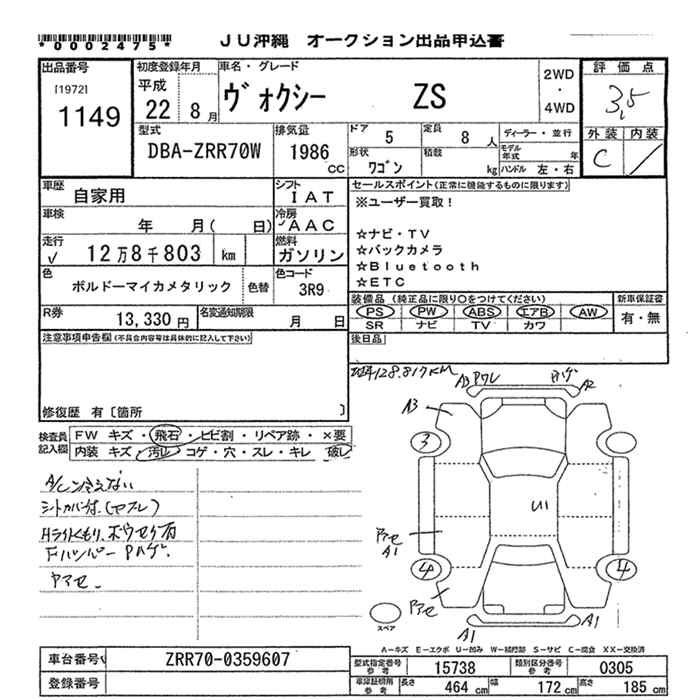 *0002475*
JU沖縄 オークション出品申込書
出品番号
[1972]
1149
初度登録年月
平成
22年 8月
車名・グレード
ヴォクシー ZS
2WD
・
4WD
評価点
3.5
外装 内装
C /
型式
DBA-ZRR70W
排気量
1986
CC
ドア 5
定員 8 人
ディーラー・並行
形状 ワゴン
積載 kg
モデル年式 年
ハンドル 左・右
車歴 自家用
シフト IAT
車検 年 月( 日)
冷房 ✓AAC
走行 ✓ 12万8千803 km
燃料 ガソリン
色 ボルドーマイカメタリック
色替
色コード 3R9
R券 13,330 円
名変通知期限 月 日
セールスポイント(正常に機能するものに限ります)
※ユーザー買取!
☆ナビ・TV
☆バックカメラ
☆Bluetooth
☆ETC
装備品 (純正品に限り○をつけてください)
PS PW ABS エアB AW
SR ナビ TV カワ
新車保証書
有・無
後日品
注意事項申告欄(不具合内容等は具体的に記入して下さい)
修復歴 有〔箇所 〕
128.817KM
A3 ワレ ハゲ A2
A3
3
U1
アセ
A1
4 4
アセ
A1 A1
スペア
検査員記入欄
FW キズ・飛石・ヒビ割・リペア跡・×要
内装 キズ・汚れ・コゲ・穴・スレ・キレ 破レ
A/C冷えない
シートカバー付.(ヤブレ)
Hライトくもり、ボウセイ有
Fバンパー Pハゲ.
ヤマセ.
A-キズ E-エクボ U-凹み W-補修跡 S-サビ C-腐食 XX-交換済
車台番号✓ ZRR70-0359607
登録番号
型式指定番号 参考 15738
類別区分番号 参考 0305
車庫証明用 参考 長さ 464 cm 幅 172 cm 高さ 185 cm